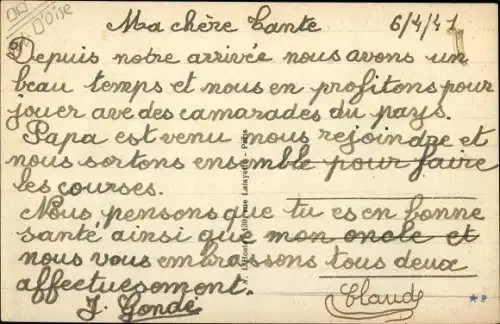 D'Oise
Ma chère Tante 6/4/41
Depuis notre arrivée nous avons un
beau temps et nous en profitons pour
jouer ave des camarades du pays.
Papa est venu nous rejoindre et
nous sortons ensemble pour faire
les courses.
Nous pensons que tu es en bonne
santé ainsi que mon oncle et
nous vous embrassons tous deux
affectuesoment.
J. Gondé Claud
rue Lafayette - Paris